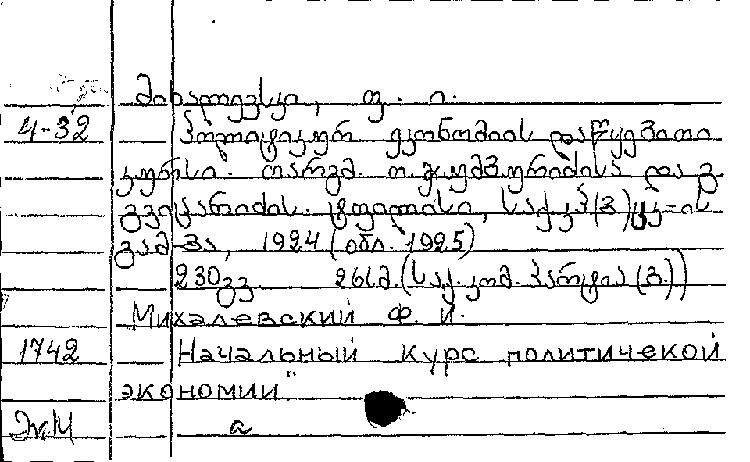 მიხალევსკი, ფ. ი.
4-32 პოლიტიკურ ეკონომიის დაწყებითი
კურსი. თარგმ. თ. ჯუმბურიძისა და გ.
გვიჩარიძის. ტფილისი, საქ კპ(ბ) ცკ-ის
გამ-ბა, 1924 (ობლ. 1925)
230 გვ. 26სმ. (საქ. კომ. პარტია (ბ.))
Михалевский Ф. И.
1742 Начальный курс политичекой
экономии."
Эк.И а